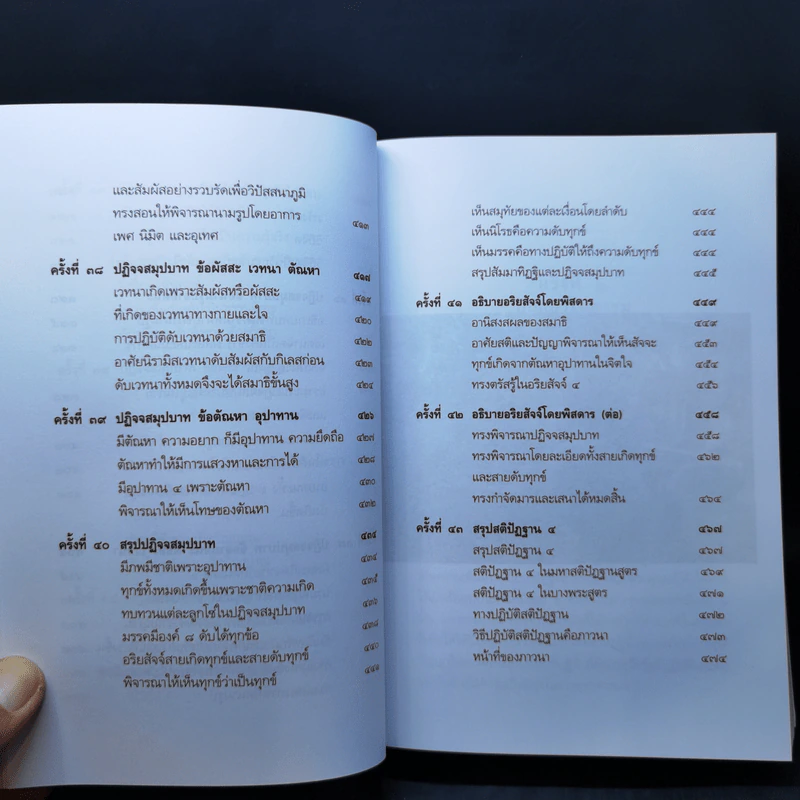 และสัมผัสอย่างรวบรัดเพื่อวิปัสสนาภูมิ
ทรงสอนให้พิจารณานามรูปโดยอาการ ๔๑๓
เพศ นิมิต และอุเทศ
ครั้งที่ ๓๘ ปฏิจจสมุปบาท ข้อผัสสะ เวทนา ตัณหา ๔๑๗
เวทนาเกิดเพราะสัมผัสหรือผัสสะ ๔๑๙
ที่เกิดของเวทนาทางกายและใจ ๔๒๐
การปฏิบัติดับเวทนาด้วยสมาธิ ๔๒๒
อาศัยนิรามิสเวทนาดับสัมผัสกับกิเลสก่อน ๔๒๓
ดับเวทนาทั้งหมดจึงจะได้สมาธิขั้นสูง ๔๒๔
ครั้งที่ ๓๙ ปฏิจจสมุปบาท ข้อตัณหา อุปาทาน ๔๒๖
มีตัณหา ความอยาก ก็มีอุปาทาน ความยึดถือ ๔๒๗
ตัณหาทำให้มีการแสวงหาและการได้ ๔๒๘
มีอุปาทาน ๔ เพราะตัณหา ๔๓๐
พิจารณาให้เห็นโทษของตัณหา ๔๓๒
ครั้งที่ ๔๐ สรุปปฏิจจสมุปบาท ๔๓๔
มีภพมีชาติเพราะอุปาทาน ๔๓๔
ทุกข์ทั้งหมดเกิดขึ้นเพราะชาติความเกิด ๔๓๕
ทบทวนแต่ละลูกโซ่ในปฏิจจสมุปบาท ๔๓๖
มรรคมีองค์ ๘ ดับได้ทุกข้อ ๔๓๘
อริยสัจจ์สายเกิดทุกข์และสายดับทุกข์ ๔๔๐
พิจารณาให้เห็นทุกข์ว่าเป็นทุกข์ ๔๔๑
เห็นสมุทัยของแต่ละเงื่อนโดยลำดับ ๔๔๔
เห็นนิโรธคือความดับทุกข์ ๔๔๔
เห็นมรรคคือทางปฏิบัติให้ถึงความดับทุกข์ ๔๔๔
สรุปสัมมาทิฏฐิและปฏิจจสมุปบาท ๔๔๕
ครั้งที่ ๔๑ อธิบายอริยสัจจ์โดยพิสดาร ๔๔๙
อานิสงสผลของสมาธิ ๔๔๙
อาศัยสติและปัญญาพิจารณาให้เห็นสัจจะ ๔๕๓
ทุกข์เกิดจากตัณหาอุปาทานในจิตใจ ๔๕๔
ทรงตรัสรู้ในอริยสัจจ์ ๔ ๔๕๖
ครั้งที่ ๔๒ อธิบายอริยสัจจ์โดยพิสดาร (ต่อ) ๔๕๘
ทรงพิจารณาปฏิจจสมุปบาท ๔๕๘
ทรงพิจารณาโดยละเอียดทั้งสายเกิดทุกข์ ๔๖๒
และสายดับทุกข์
ทรงกำจัดมารและเสนาได้หมดสิ้น ๔๖๔
ครั้งที่ ๔๓ สรุปสติปัฏฐาน ๔ ๔๖๗
สรุปสติปัฏฐาน ๔ ๔๖๗
สติปัฏฐาน ๔ ในมหาสติปัฏฐานสูตร ๔๖๙
สติปัฏฐาน ๔ ในบางพระสูตร ๔๗๑
ทางปฏิบัติสติปัฏฐาน ๔๗๒
วิธีปฏิบัติสติปัฏฐานคือภาวนา ๔๗๓
หน้าที่ของภาวนา ๔๗๔